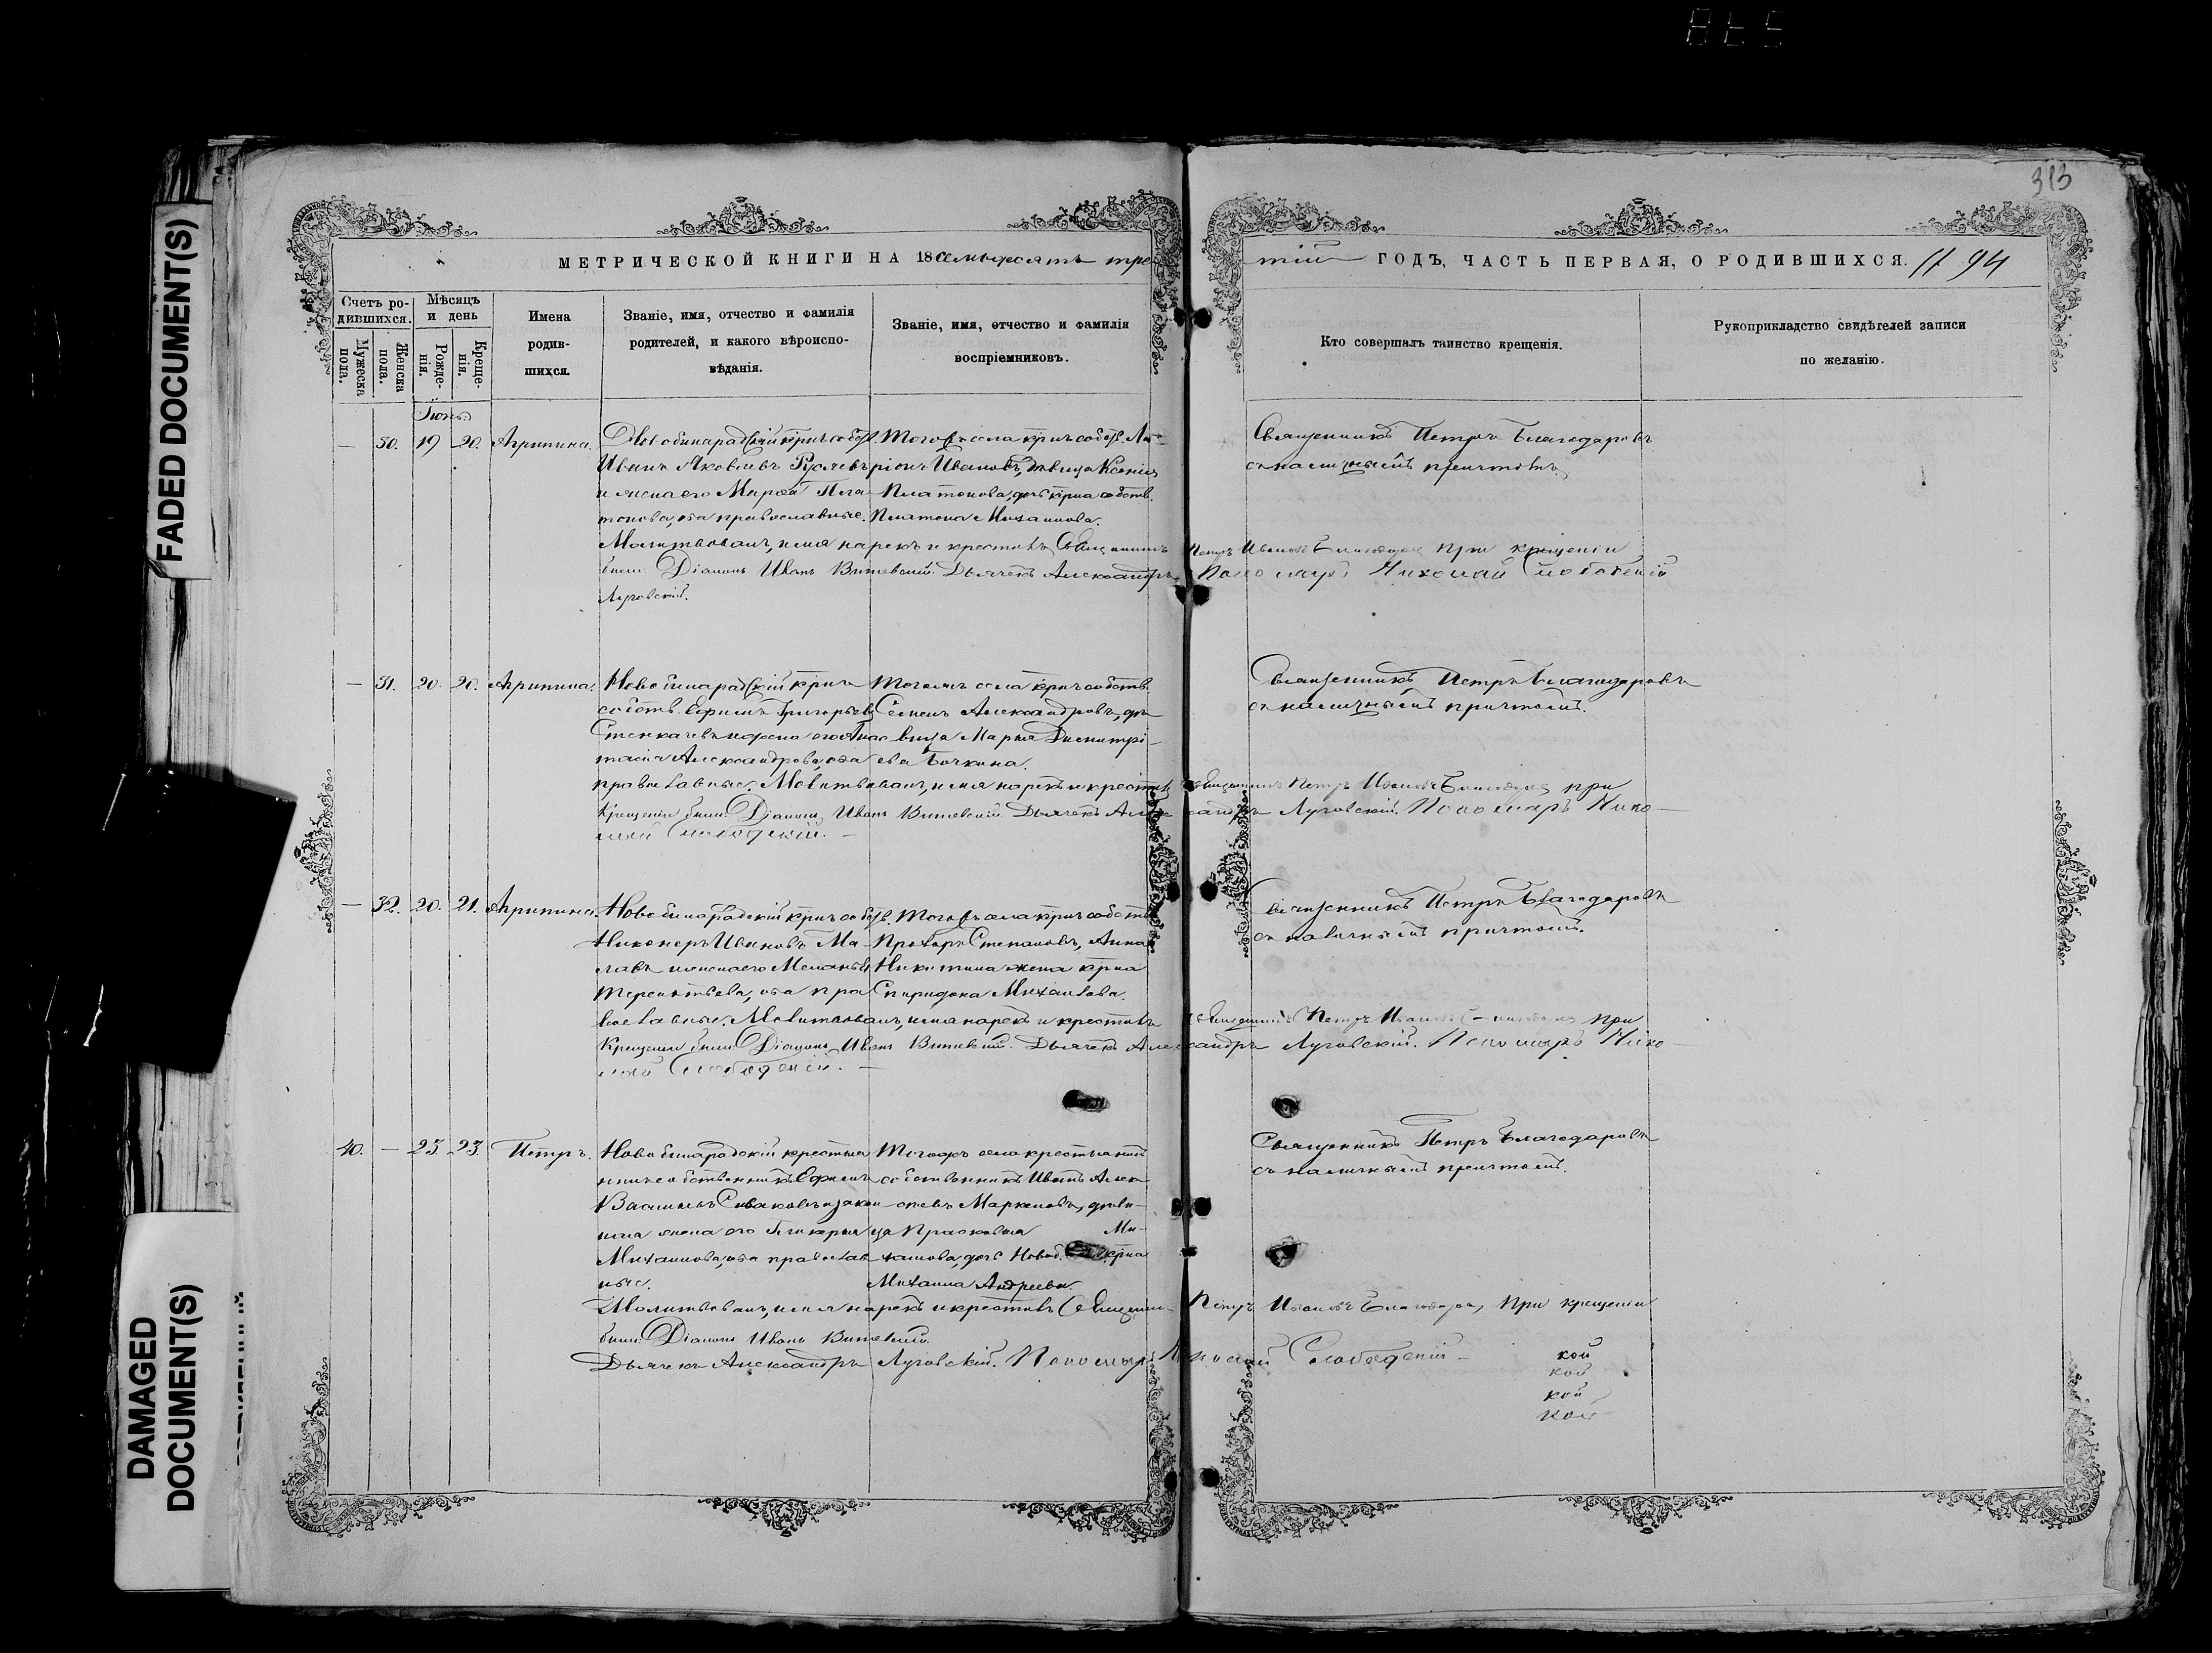 FADED DOCUMENT(S)
DAMAGED DOCUMENT(S)
313
МЕТРИЧЕСКОЙ КНИГИ НА 18семьдесятъ тре
тій ГОДЪ, ЧАСТЬ ПЕРВАЯ, О РОДИВШИХСЯ. 94
Счетъ родившихся.
Мужеска пола.
Женска пола.
Мѣсяцъ и день
Рожденія.
Крещенія.
Имена родившихся.
Званіе, имя, отчество и фамилія родителей, и какого вѣроисповѣданія.
Званіе, имя, отчество и фамилія воспріемниковъ.
Кто совершалъ таинство крещенія.
Рукоприкладство свидѣтелей записи по желанію.
Іюнь
— 30. 19 20. Агрипина.
Новобинарадскій кр-нъ собст.
Иванъ Яковлевъ
и жена его Марѳа Пла-
тонова, оба православные.
Тогожъ села кр-нъ собст. Ла-
ріонъ Ивановъ, дѣвица Ксенія
Платонова, дочь кр-на собств.
Платона Михаилова.
Священникъ Петръ Благодаровъ
съ наличнымъ причтомъ.
Молитвовалъ, имя нарекъ и крестилъ Священникъ Петръ Ивановъ Благодаровъ при крещеніи
были: Діаконъ Иванъ Дьячекъ Александръ
Луговскій. Пономарь Николай
— 31. 20. 20. Агрипина.
Новобинарадскій кр-нъ
собств. Ефимъ Григорьевъ
и жена его Анас
тасія Александрова, оба
православные.
Тогожъ села кр-нъ собств.
Семенъ Александровъ, дѣ-
вица Марья Димитрі-
ева Бочкина.
Священникъ Петръ Благодаровъ
съ наличнымъ причтомъ.
Молитвовалъ, имя нарекъ и крестилъ Священникъ Петръ Ивановъ Благодаровъ при
крещеніи были: Діаконъ Иванъ Дьячекъ Александръ Луговскій. Пономарь Нико-
лай
— 32. 20. 21. Агрипина.
Новобинарадскій кр-нъ собст.
Никоноръ Ивановъ Ма-
лавъ и жена его Меланья
Терентьева, оба пра
вославные.
Тогожъ села кр-нъ собств.
Прохоръ Степановъ, Анна
Никитина жена кр-на
Спиридона Михаилова.
Священникъ Петръ Благодаровъ
съ наличнымъ причтомъ.
Молитвовалъ, имя нарекъ и крестилъ Священникъ Петръ Ивановъ Благодаровъ при
крещеніи были: Діаконъ Иванъ Дьячекъ Александръ Луговскій. Пономарь Нико-
лай
40. — 23. 23. Петръ.
Новобинарадскій крестья
нинъ собственникъ Ефимъ
Васильевъ Сиваковъ и закон
ная жена его Гликерья
Михаилова, оба православ
ные.
Тогожъ села крестьянинъ
собственникъ Иванъ Алек
сѣевъ Маркеловъ, дѣви-
ца Прасковья Ми-
хаилова, дочь Новоб. кр-на
Михаила Андреева.
Священникъ Петръ Благодаровъ
съ наличнымъ причтомъ.
Молитвовалъ, имя нарекъ и крестилъ Священникъ Петръ Ивановъ Благодаровъ, при крещеніи
были: Діаконъ Иванъ
Дьячекъ Александръ Луговскій. Пономарь Николай
кой
кой
кой
кой